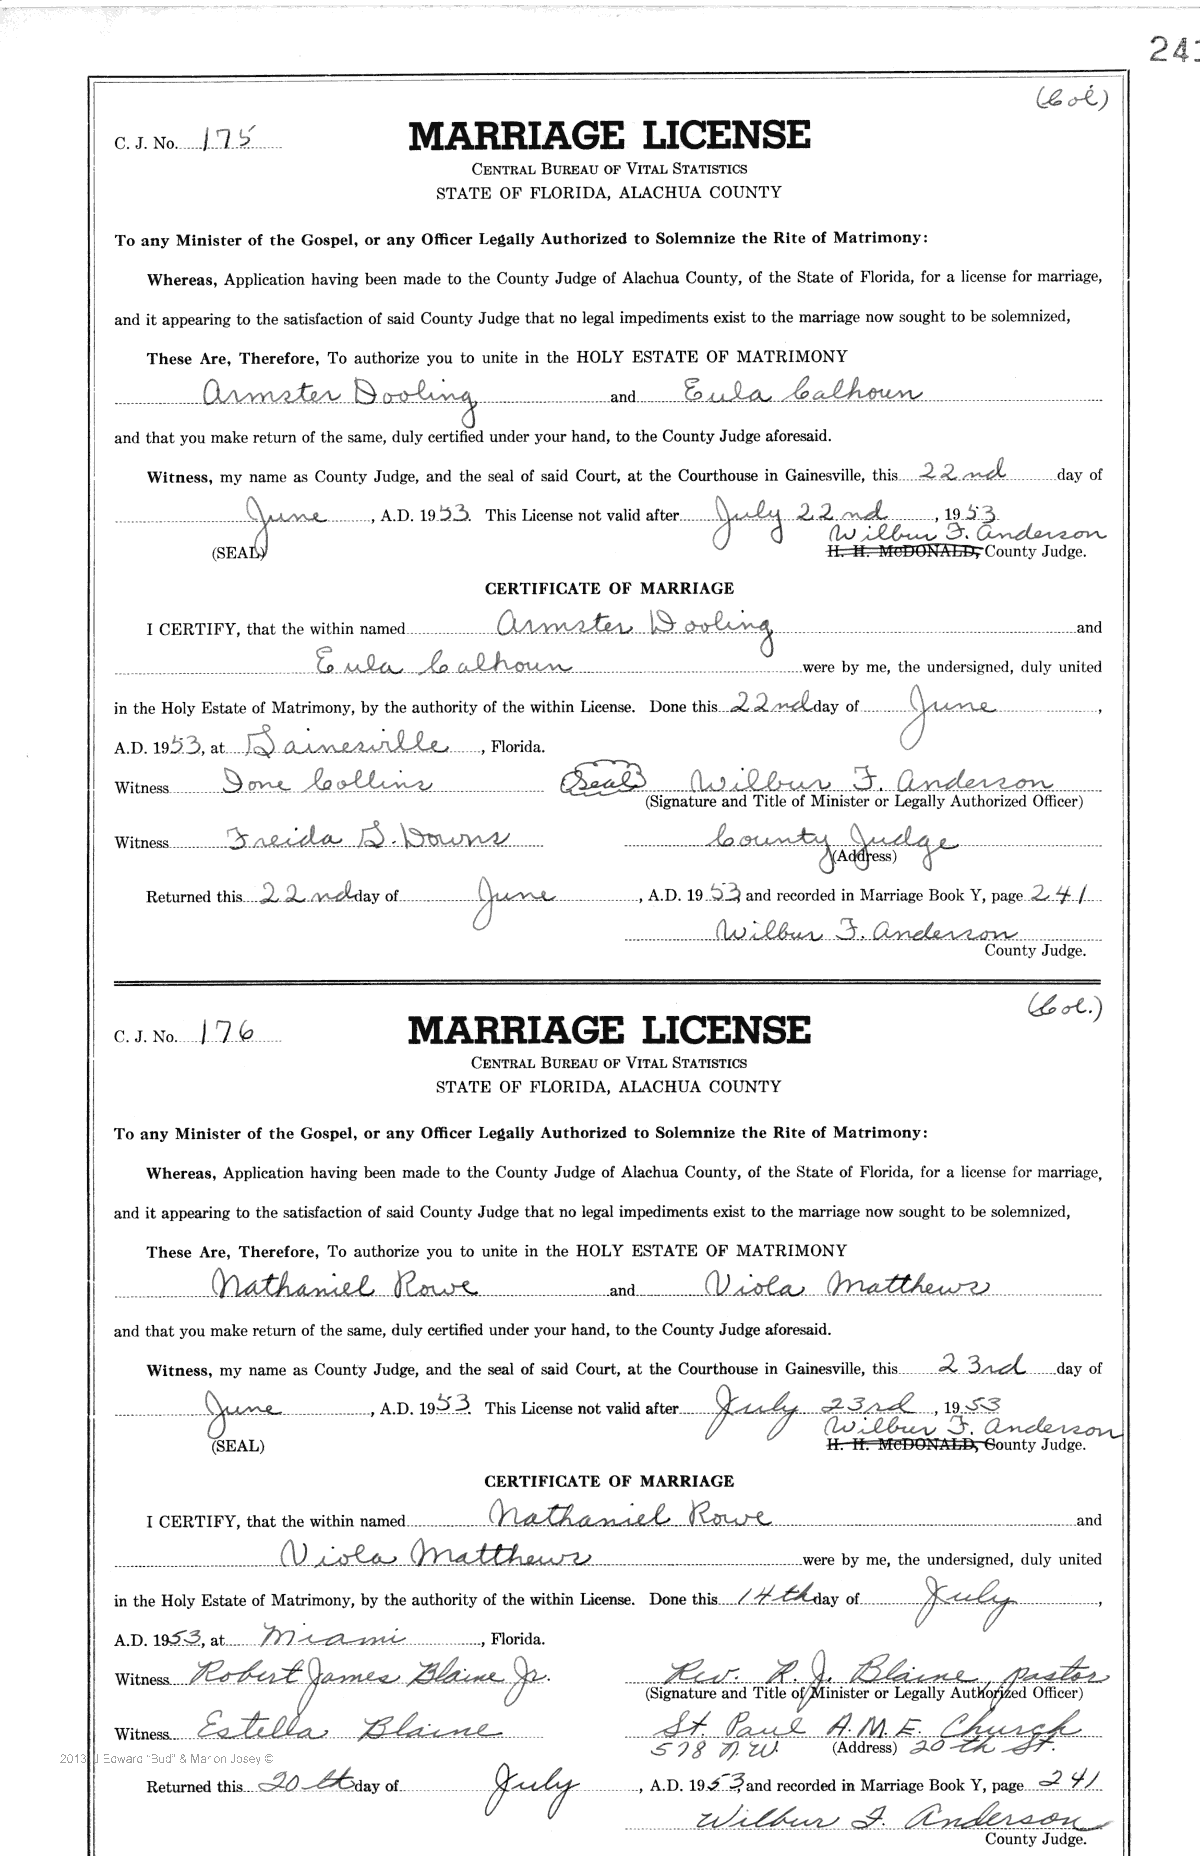 241
(Col)
C. J. No. 175
MARRIAGE LICENSE
CENTRAL BUREAU OF VITAL STATISTICS
STATE OF FLORIDA, ALACHUA COUNTY
To any Minister of the Gospel, or any Officer Legally Authorized to Solemnize the Rite of Matrimony:
Whereas, Application having been made to the County Judge of Alachua County, of the State of Florida, for a license for marriage,
and it appearing to the satisfaction of said County Judge that no legal impediments exist to the marriage now sought to be solemnized,
These Are, Therefore, To authorize you to unite in the HOLY ESTATE OF MATRIMONY
Armster Dooling and Eula Calhoun
and that you make return of the same, duly certified under your hand, to the County Judge aforesaid.
Witness, my name as County Judge, and the seal of said Court, at the Courthouse in Gainesville, this 22nd day of
June, A.D. 1953. This License not valid after July 22nd, 1953
Wilbur F. Anderson
(SEAL) H. H. McDONALD, County Judge.
CERTIFICATE OF MARRIAGE
I CERTIFY, that the within named Armster Dooling and
Eula Calhoun were by me, the undersigned, duly united
in the Holy Estate of Matrimony, by the authority of the within License. Done this 22nd day of June,
A.D. 1953, at Gainesville, Florida.
Witness Ione Collins (Seal) Wilbur F. Anderson
(Signature and Title of Minister or Legally Authorized Officer)
Witness Freida G. Downs County Judge
(Address)
Returned this 22nd day of June, A.D. 1953, and recorded in Marriage Book Y, page 241
Wilbur F. Anderson
County Judge.
(Col.)
C. J. No. 176
MARRIAGE LICENSE
CENTRAL BUREAU OF VITAL STATISTICS
STATE OF FLORIDA, ALACHUA COUNTY
To any Minister of the Gospel, or any Officer Legally Authorized to Solemnize the Rite of Matrimony:
Whereas, Application having been made to the County Judge of Alachua County, of the State of Florida, for a license for marriage,
and it appearing to the satisfaction of said County Judge that no legal impediments exist to the marriage now sought to be solemnized,
These Are, Therefore, To authorize you to unite in the HOLY ESTATE OF MATRIMONY
Nathaniel Rowe and Viola Matthews
and that you make return of the same, duly certified under your hand, to the County Judge aforesaid.
Witness, my name as County Judge, and the seal of said Court, at the Courthouse in Gainesville, this 23rd day of
June, A.D. 1953. This License not valid after July 23rd, 1953
Wilbur F. Anderson
(SEAL) H. H. McDONALD, County Judge.
CERTIFICATE OF MARRIAGE
I CERTIFY, that the within named Nathaniel Rowe and
Viola Matthews were by me, the undersigned, duly united
in the Holy Estate of Matrimony, by the authority of the within License. Done this 14th day of July,
A.D. 1953, at Miami, Florida.
Witness Robert James Blaine Jr. Rev. R. J. Blaine, pastor
(Signature and Title of Minister or Legally Authorized Officer)
Witness Estella Blaine St. Paul A.M.E. Church
578 N.W. (Address) 20th St.
2013 J Edward "Bud" & Marion Josey ©
Returned this 20th day of July, A.D. 1953, and recorded in Marriage Book Y, page 241
Wilbur F. Anderson
County Judge.